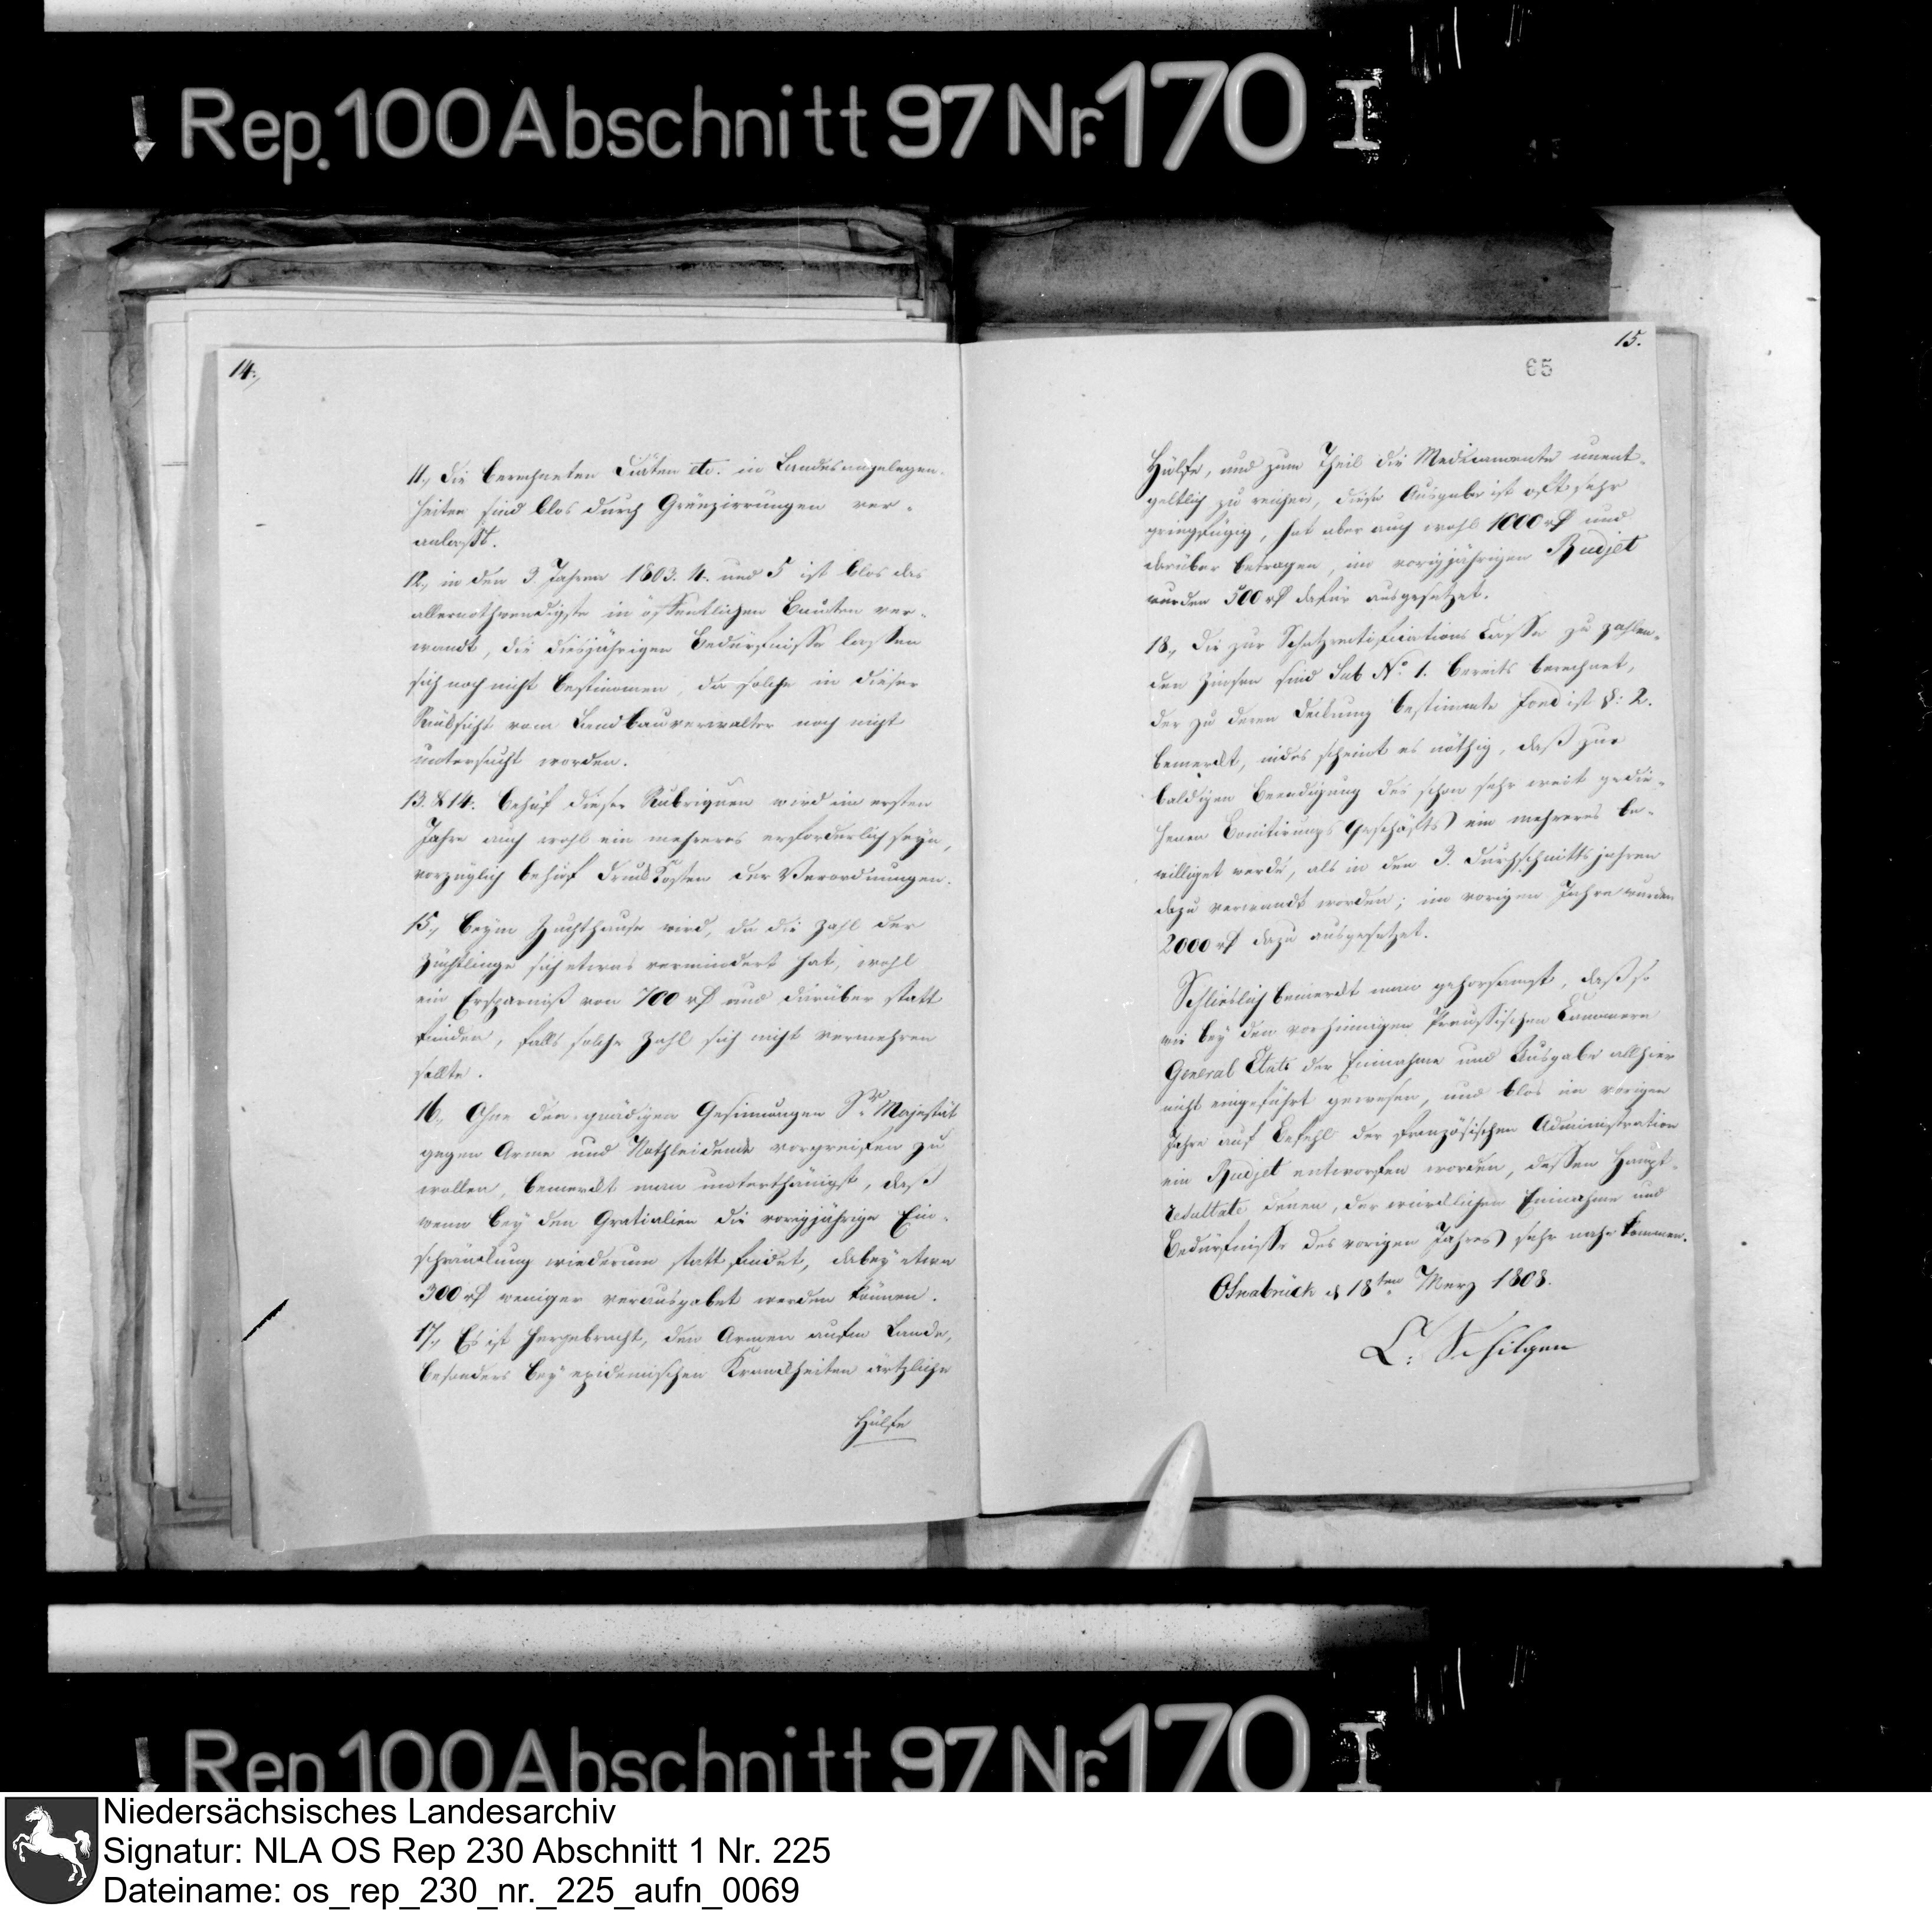 Rep. 100 Abschnitt 97 Nr. 170 I
14.,
11., die berechneten Diäten etc. in Landesangelegen-
heiten sind blos durch Gränzirrungen ver-
anlaßt.
12., in den 3. Jahren 1803. 4. und 5 ist blos das
allernothwendigste in öffentlichen Bauten ver-
wandt, die diesjährigen Bedürfnisse lassen
sich noch nicht bestimmen, da solche in dieser
Rücksicht vom Landbauverwalter noch nicht
untersucht worden.
13. & 14. Behuf dieser Rubriquen wird im ersten
Jahre auch wohl ein mehreres erforderlich seyn,
vorzüglich behuf Druckkosten der Verordnungen.
15., Beym Zuchthause wird, da die Zahl der
Züchtlinge sich etwas vermindert hat, wohl
ein Ersparniß von 700 rℓ und darüber statt
finden, falls solche Zahl sich nicht vermehren
sollte.
16., Ohne den gnädigen Gesinnungen Sr. Majestät
gegen Arme und Nothleidende vorgreifen zu
wollen, bemerckt man unterthänigst, daß
wenn bey den Gratialien die vorigjährige Ein-
schränckung wiederum statt findet, dabey etwa
300 rℓ weniger verausgabet werden können.
17., Es ist hergebracht, den Armen aufm Lande,
besonders bey epidemischen Kranckheiten ärtzliche
Hülfe
15.
65
Hülfe, und zum Theil die Medicamente unent-
geltlich zu reichen, diese Ausgabe ist oft sehr
geringfügig, hat aber auch wohl 1000 rℓ und
darüber betragen, im vorigjährigen Budjet
wurden 500 rℓ dafür ausgesetzet.
18., Die zur Schatzrectificications Casse zu zahlen-
den Zinsen sind Sub No. 1. bereits berechnet,
der zu deren Deckung bestimmte Fond ist §: 2.
bemerckt, indes scheint es nöthig, daß zur
baldigen Beendigung des schon sehr weit gedie-
henen Bonitirungs Geschäfts ein mehreres be-
williget werde, als in den 3. Durchschnitts jahren
dazu verwandt worden; im vorigen Jahre wurden
2000 rℓ dazu ausgesetzet.
Schlieslich bemerckt man gehorsamst, daß so
wie bey den vorhinnigen Preussischen Cammern
General Etats der Einnahme und Ausgabe allhier
nicht eingeführt gewesen, und blos im vorigen
Jahre auf Befehl der französischen Administration
ein Budjet entworfen worden, dessen Haupt-
resultate denen, der würcklichen Einnahme und
Bedürfnisse des vorigen Jahres sehr nahe kommen.
Osnabrück d 18ten März 1808.
L: Schilgen
Rep 100 Abschnitt 97 Nr. 170 I
Niedersächsisches Landesarchiv
Signatur: NLA OS Rep 230 Abschnitt 1 Nr. 225
Dateiname: os_rep_230_nr._225_aufn_0069